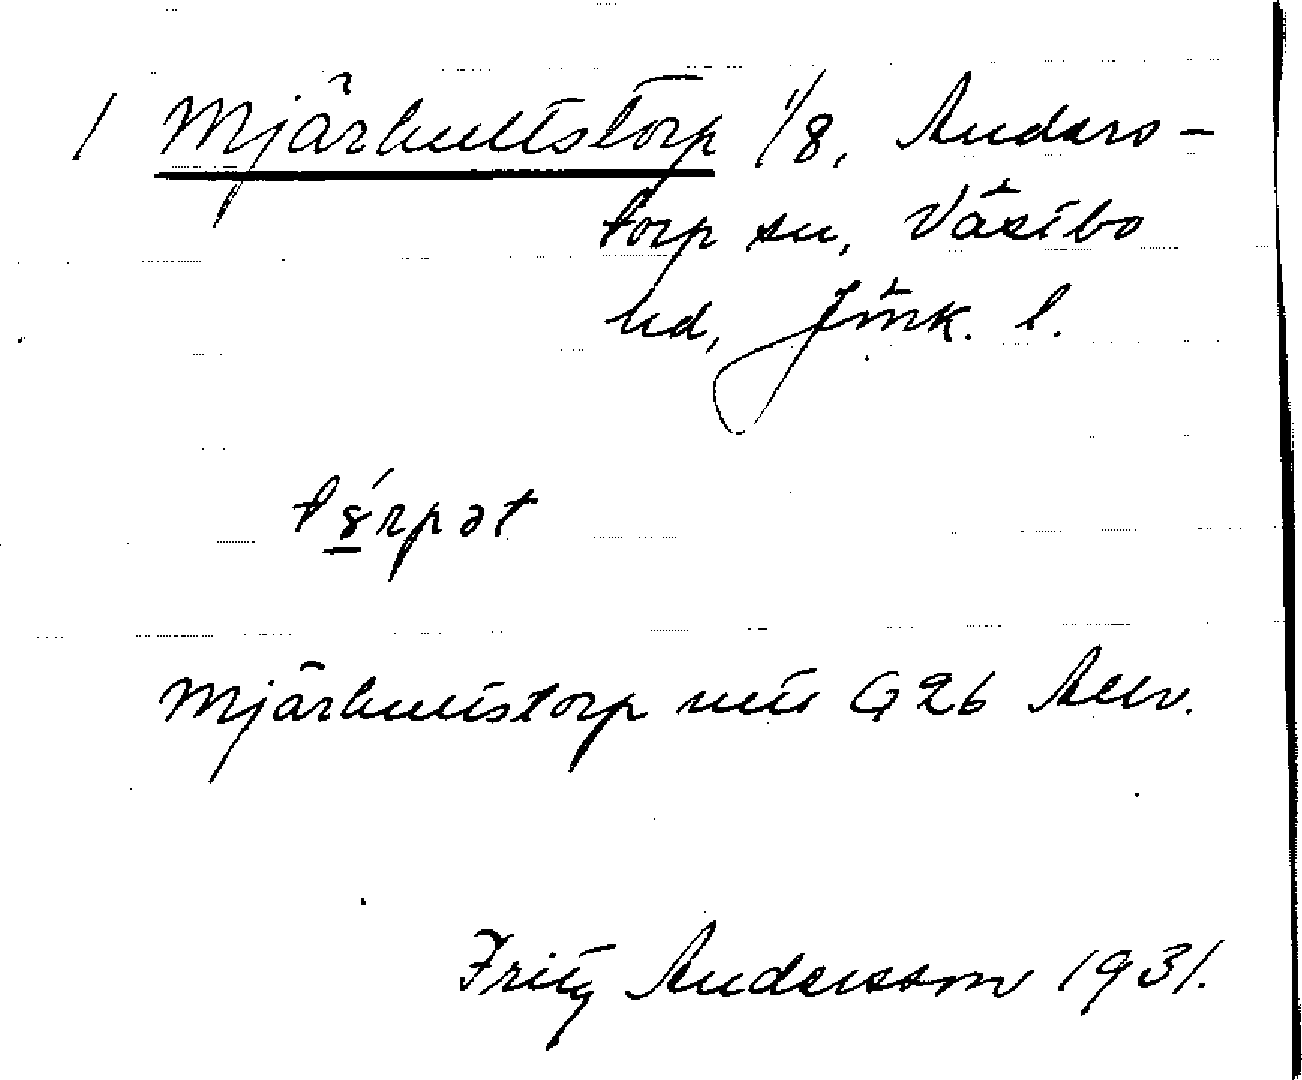 1 Mjärhultstorp 1/8, Anders-
torp sn, Västbo
hd, Jönk. l.
tɤ́rpət
Mjärhultstorp mtl G26 Allv.
Fritz Andersson 1931.